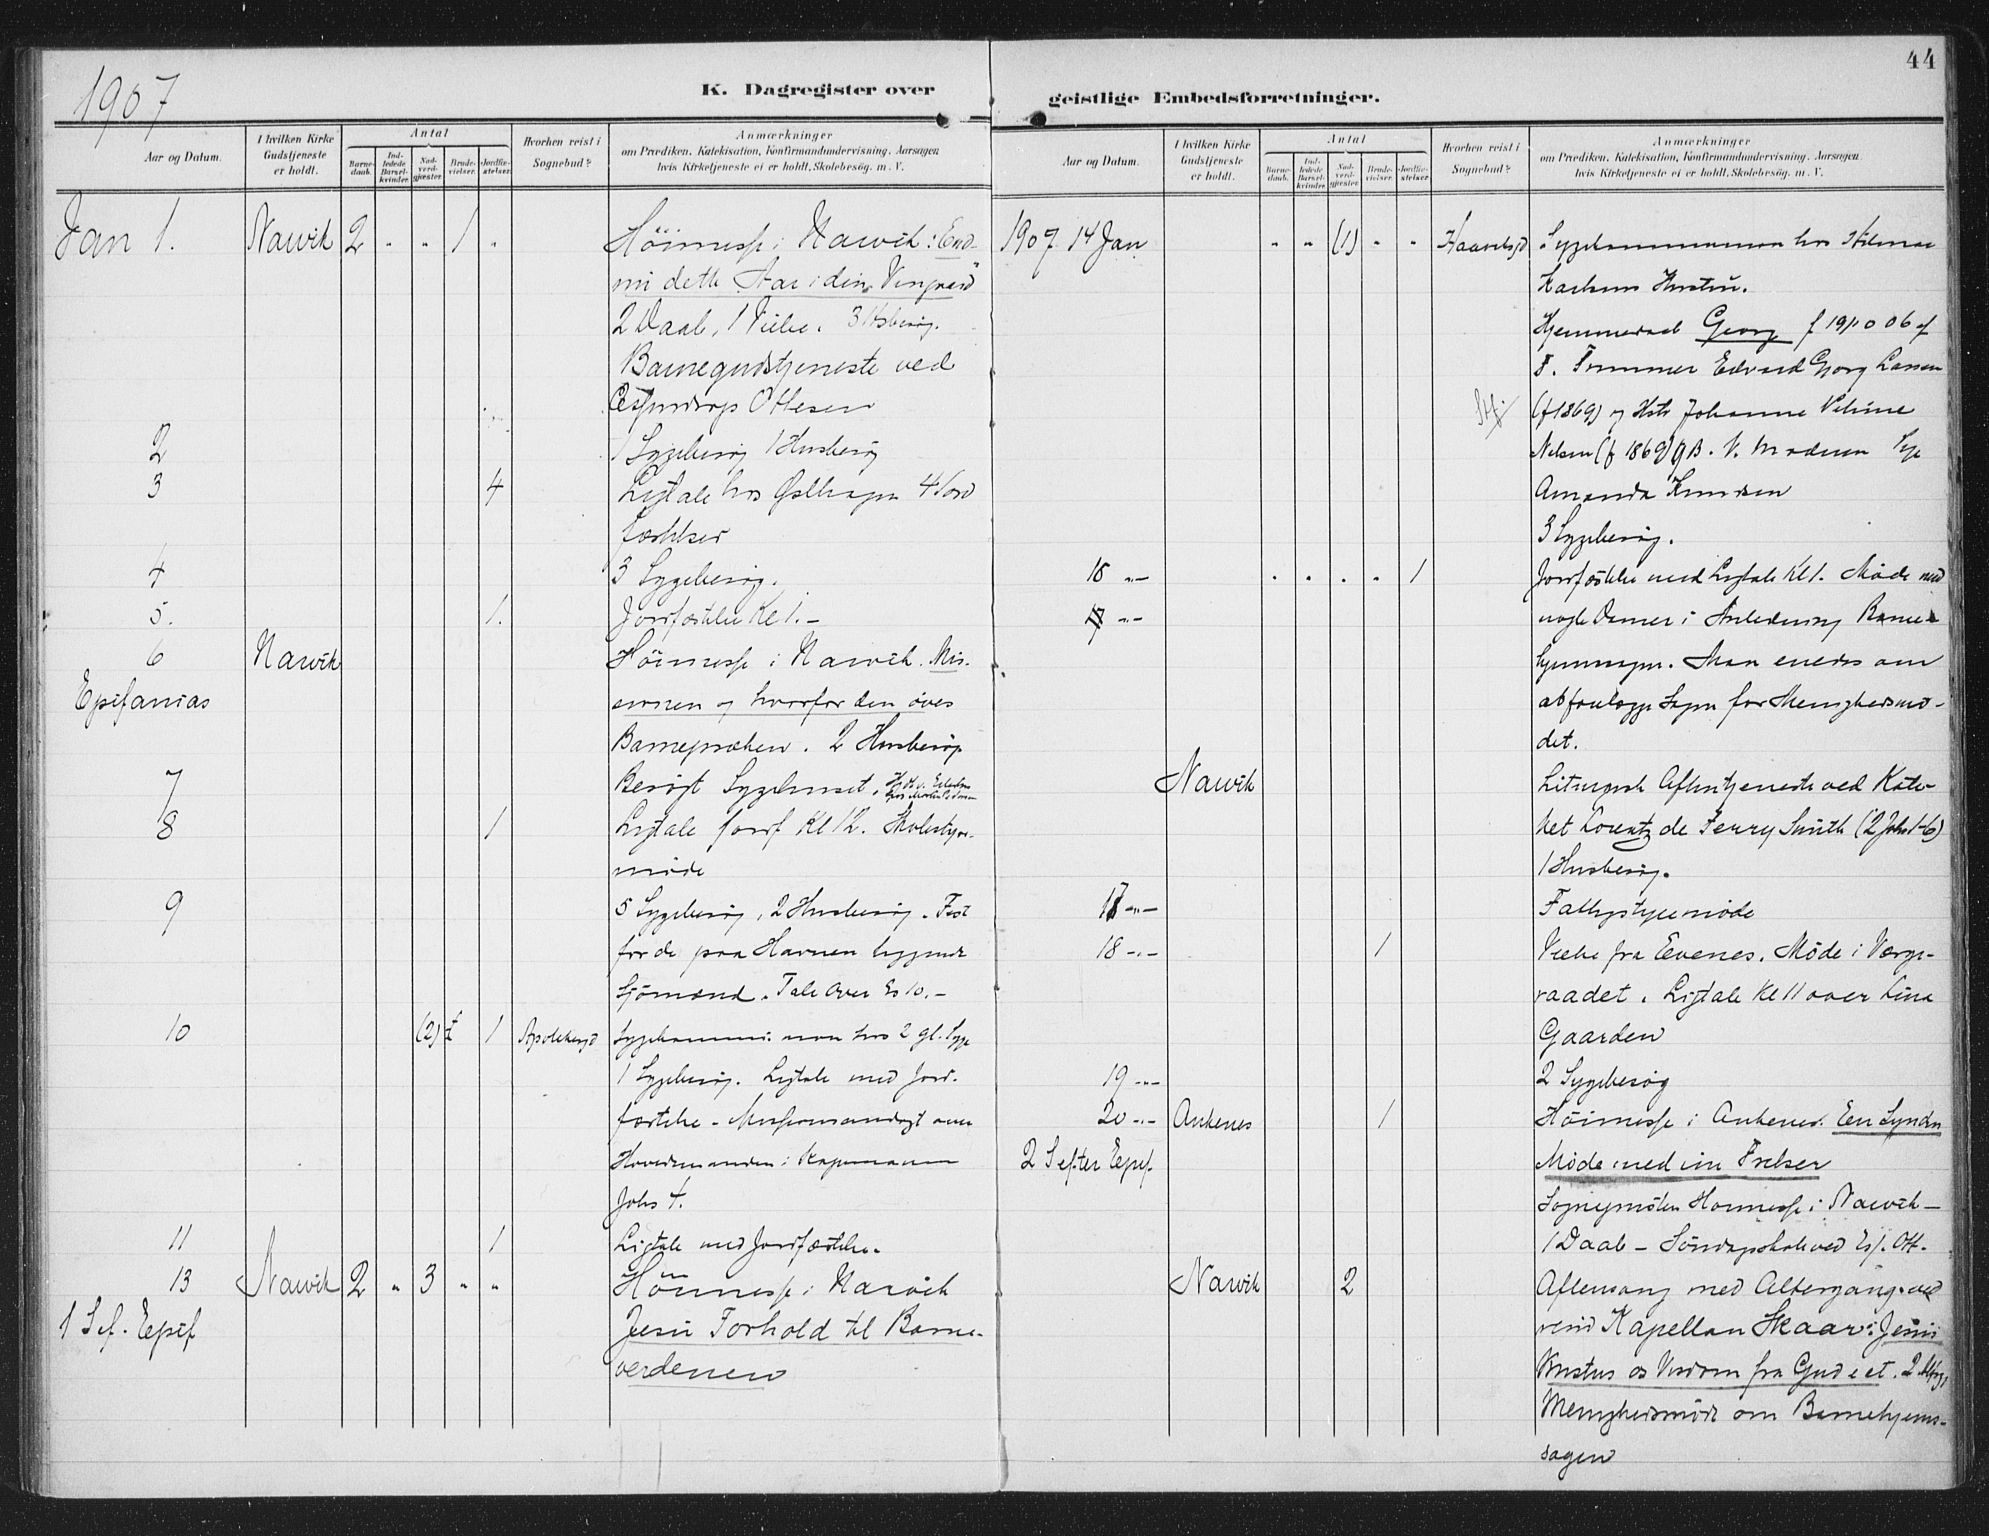 1907
K. Dagregister over
Aar og Datum.
I hvilken Kirke Gudstjeneste er holdt.
Antal
Barnedaab.
Indledede Barselkvinder.
Nadverdgjester.
Brudevielser.
Jordfæstelser.
Hvorhen reist i Sognebud?
Anmærkninger
om Prædiken, Katekisation, Konfirmandundervisning, Aarsagen
hvis Kirketjeneste ei er holdt, Skolebesøg, m. V.
Jan 1. Narvik 2 " " 1 " Höimesse i Narvik: End-
nu dette Aar i din Vingaard"
2 Daab, 1 Vielse. 3 Husbesøg.
Barnegudstjeneste ved
Ottesen
2 1 Sygebesøg 1 Husbesøg
3 4 Ligtale hos 4 Jord
fæstelser
4 3 Sygebesøg.
5. 1. Jordfæstelse Kl 1. –
6 Narvik Höimesse i Narvik. Mis-
Epifanias sionen og hvorfor den øves
Barnepræken. 2 Husbesøg
7 Besøgt Sygehuset.
8 1 Ligtale Jordf Kl 12. Skolestyre-
møde
9 5 Sygebesøg, 2 Husbesøg. Fest
for de paa Havnen liggende
Sjömænd. Tale over Es 10. –
10 (2) 1 Sygekommunion hos 2 gl. Syge
1 Sygebesøg. Ligtale med Jord-
fæstelse – Missionsandagt over
Høvedsmanden i Kapernaum
Johs 4.
11 1 Ligtale med Jordfæstelse.
13 Narvik 2 " 3 " " Höimesse i Narvik
1 S ef. Epif Jesu Forhold til Barne-
verdenen
44
geistlige Embedsforretninger.
Aar og Datum.
I hvilken Kirke Gudstjeneste er holdt.
Antal
Barnedaab.
Indledede Barselkvinder.
Nadverdgjester.
Brudevielser.
Jordfæstelser.
Hvorhen reist i Sognebud?
Anmærkninger
om Prædiken, Katekisation, Konfirmandundervisning, Aarsagen
hvis Kirketjeneste ei er holdt, Skolebesøg, m. V.
1907 14 Jan " " (1) " " Sygekommunion hos
Karlsens Hustru.
Hjemmedaab Georg f 19/10 06 af
F. Edvard Georg Larsen
(f 1869) og Hstr Johanne
Nilsen (f 1869) V. Moderen
Amanda Knudsen
3 Sygebesøg.
1 Jordfæstelse med Ligtale Kl 1. Møde med
nogle Damer i Anledning Barne-
hjemmsagen. Man enedes om
at forelægge Sagen for Menighedsmø-
det.
Narvik Liturgisk Aftentjeneste ved Kate-
ket Lorentz de Ferry Smith (2 Johs 1-6)
1 Husbesøg.
17 -"- Fattigstyremøde
18 -"- 1 Vielse fra Evenes. Møde i Verge-
raadet. Ligtale Kl 11 over Lina
Gaarden
19 -"- 2 Sygebesøg
20 -"- Ankenes 1 Höimesse i Ankenes: En Synders
2 S efter Epif. Møde med sin Frelser
Sognepresten Høimesse i Narvik –
1 Daab – Söndagsskole ved Ott.
Narvik 2 Aftensang med Altergang ved
resid Kapellan Skaar: Jesus
Kristus os Visdom fra Gud
Menighedsmøde om Barnehjems-
sagen